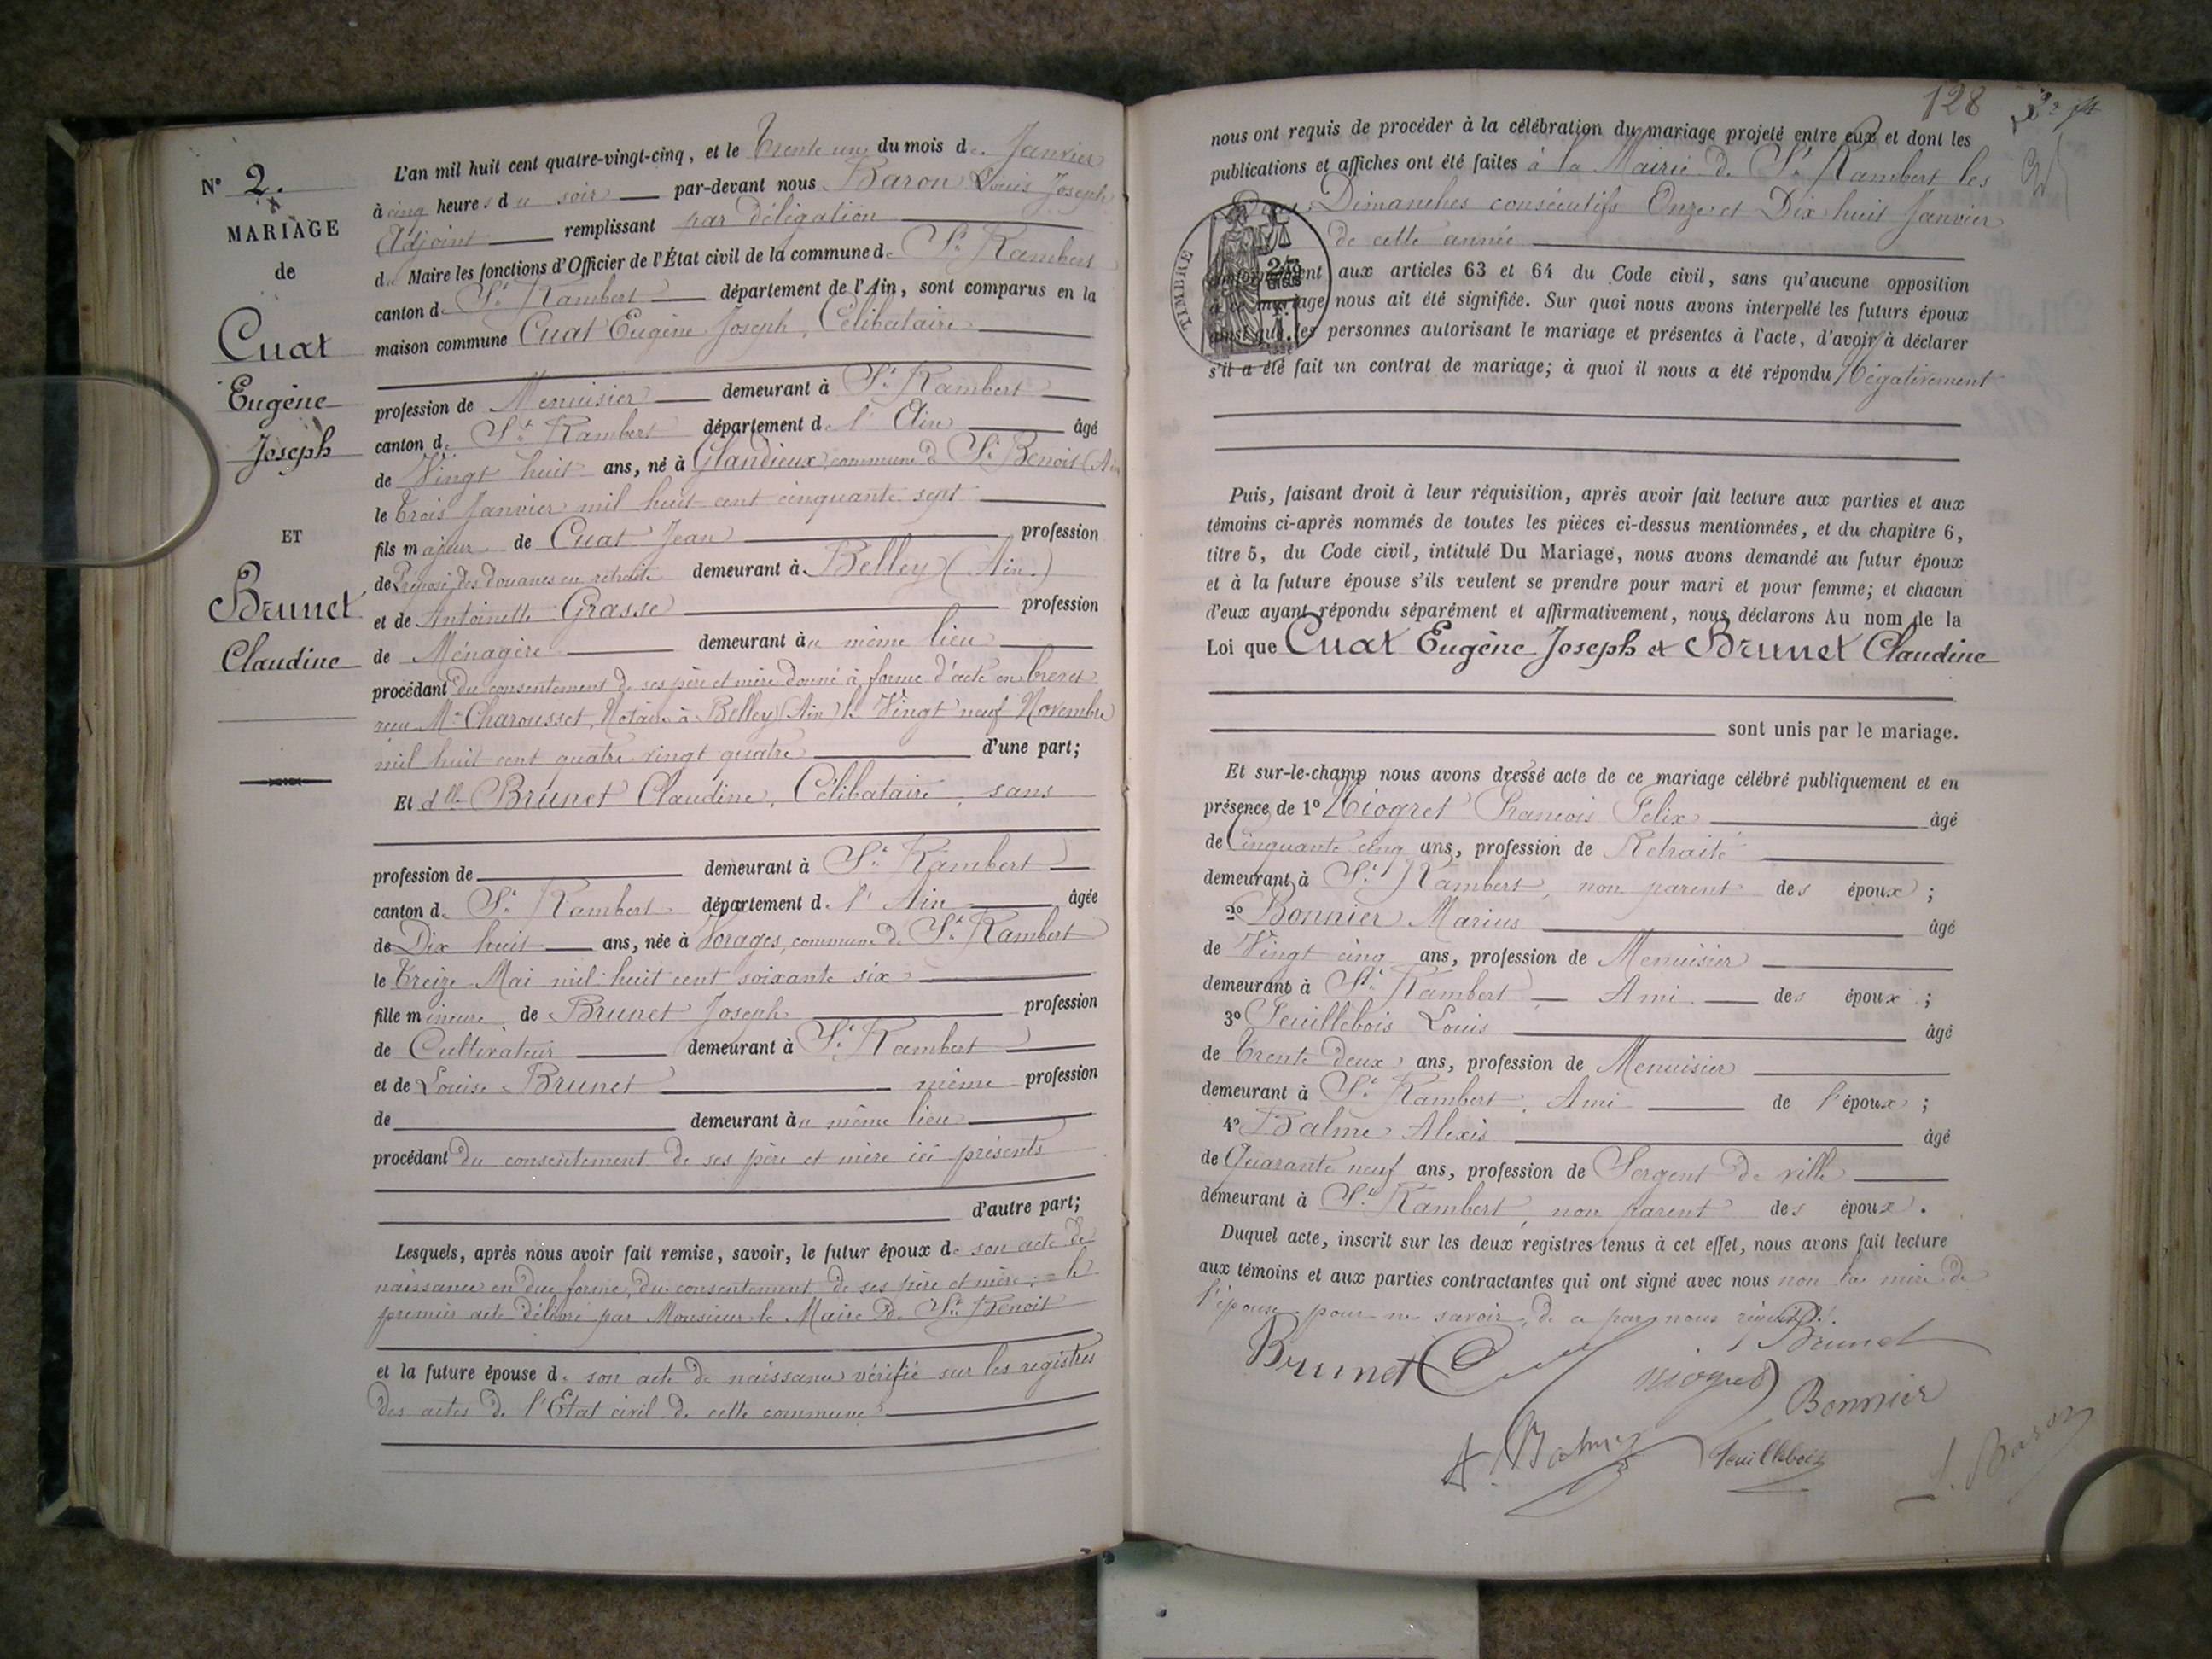 N° 2.
MARIAGE
de
Cuat
Eugène
Joseph
ET
Brunet
Claudine
L'an mil huit cent quatre-vingt-cinq, et le Trente un du mois de Janvier
à cinq heures du soir par-devant nous Baron Louis Joseph
Adjoint remplissant par délégation
du Maire les fonctions d'Officier de l'État civil de la commune de St Rambert
canton de St Rambert département de l'Ain, sont comparus en la
maison commune Cuat Eugène Joseph, Célibataire
profession de Menuisier demeurant à St Rambert
canton de St Rambert département de l'Ain âgé
de Vingt huit ans, né à Glandieux, commune de St Benoit (Ain
le Trois Janvier mil huit cent cinquante sept
fils majeur de Cuat Jean profession
de Préposé des douanes en retraite demeurant à Belley (Ain)
et de Antoinette Grasse profession
de Ménagère demeurant au même lieu
procédant du consentement de ses père et mère donné à forme d'acte en brevet
reçu Me Charousset, Notaire à Belley (Ain) le Vingt neuf Novembre
mil huit cent quatre vingt quatre d'une part;
Et dlle Brunet Claudine, Célibataire, sans
profession de demeurant à St Rambert
canton de St Rambert département de l'Ain âgée
de Dix huit ans, née à Vorages, commune de St Rambert
le Treize Mai mil huit cent soixante six
fille mineure de Brunet Joseph profession
de Cultivateur demeurant à St Rambert
et de Louise Brunet même profession
de demeurant au même lieu
procédant du consentement de ses père et mère ici présents
d'autre part;
Lesquels, après nous avoir fait remise, savoir, le futur époux de son acte de
naissance en due forme, du consentement de ses père et mère; le
premier acte délivré par Monsieur le Maire de St Benoit
et la future épouse de son acte de naissance vérifié sur les registres
des actes de l'Etat civil de cette commune
128
nous ont requis de procéder à la célébration du mariage projeté entre eux et dont les
publications et affiches ont été faites à la Mairie de St Rambert les
Dimanches consécutifs Onze et Dix huit Janvier
de cette année
TIMBRE
aux articles 63 et 64 du Code civil, sans qu'aucune opposition
à ce mariage nous ait été signifiée. Sur quoi nous avons interpellé les futurs époux
ainsi que les personnes autorisant le mariage et présentes à l'acte, d'avoir à déclarer
s'il a été fait un contrat de mariage; à quoi il nous a été répondu Négativement
Puis, faisant droit à leur réquisition, après avoir fait lecture aux parties et aux
témoins ci-après nommés de toutes les pièces ci-dessus mentionnées, et du chapitre 6,
titre 5, du Code civil, intitulé Du Mariage, nous avons demandé au futur époux
et à la future épouse s'ils veulent se prendre pour mari et pour femme; et chacun
d'eux ayant répondu séparément et affirmativement, nous déclarons Au nom de la
Loi que Cuat Eugène Joseph et Brunet Claudine
sont unis par le mariage.
Et sur-le-champ nous avons dressé acte de ce mariage célébré publiquement et en
présence de 1° Niogret François Felix âgé
de Cinquante cinq ans, profession de Retraité
demeurant à St Rambert, non parent des époux;
2° Bonnier Marius âgé
de Vingt cinq ans, profession de Menuisier
demeurant à St Rambert Ami des époux;
3° Feuillebois Louis âgé
de Trente deux ans, profession de Menuisier
demeurant à St Rambert, Ami de l'époux;
4° Balme Alexis âgé
de Quarante neuf ans, profession de Sergent de ville
demeurant à St Rambert, non parent des époux.
Duquel acte, inscrit sur les deux registres tenus à cet effet, nous avons fait lecture
aux témoins et aux parties contractantes qui ont signé avec nous non la mère de
l'épouse pour ne savoir, de ce par nous requise.
Brunet Cuat Niogret Brunet
Bonnier
A. Balme Feuillebois L. Baron